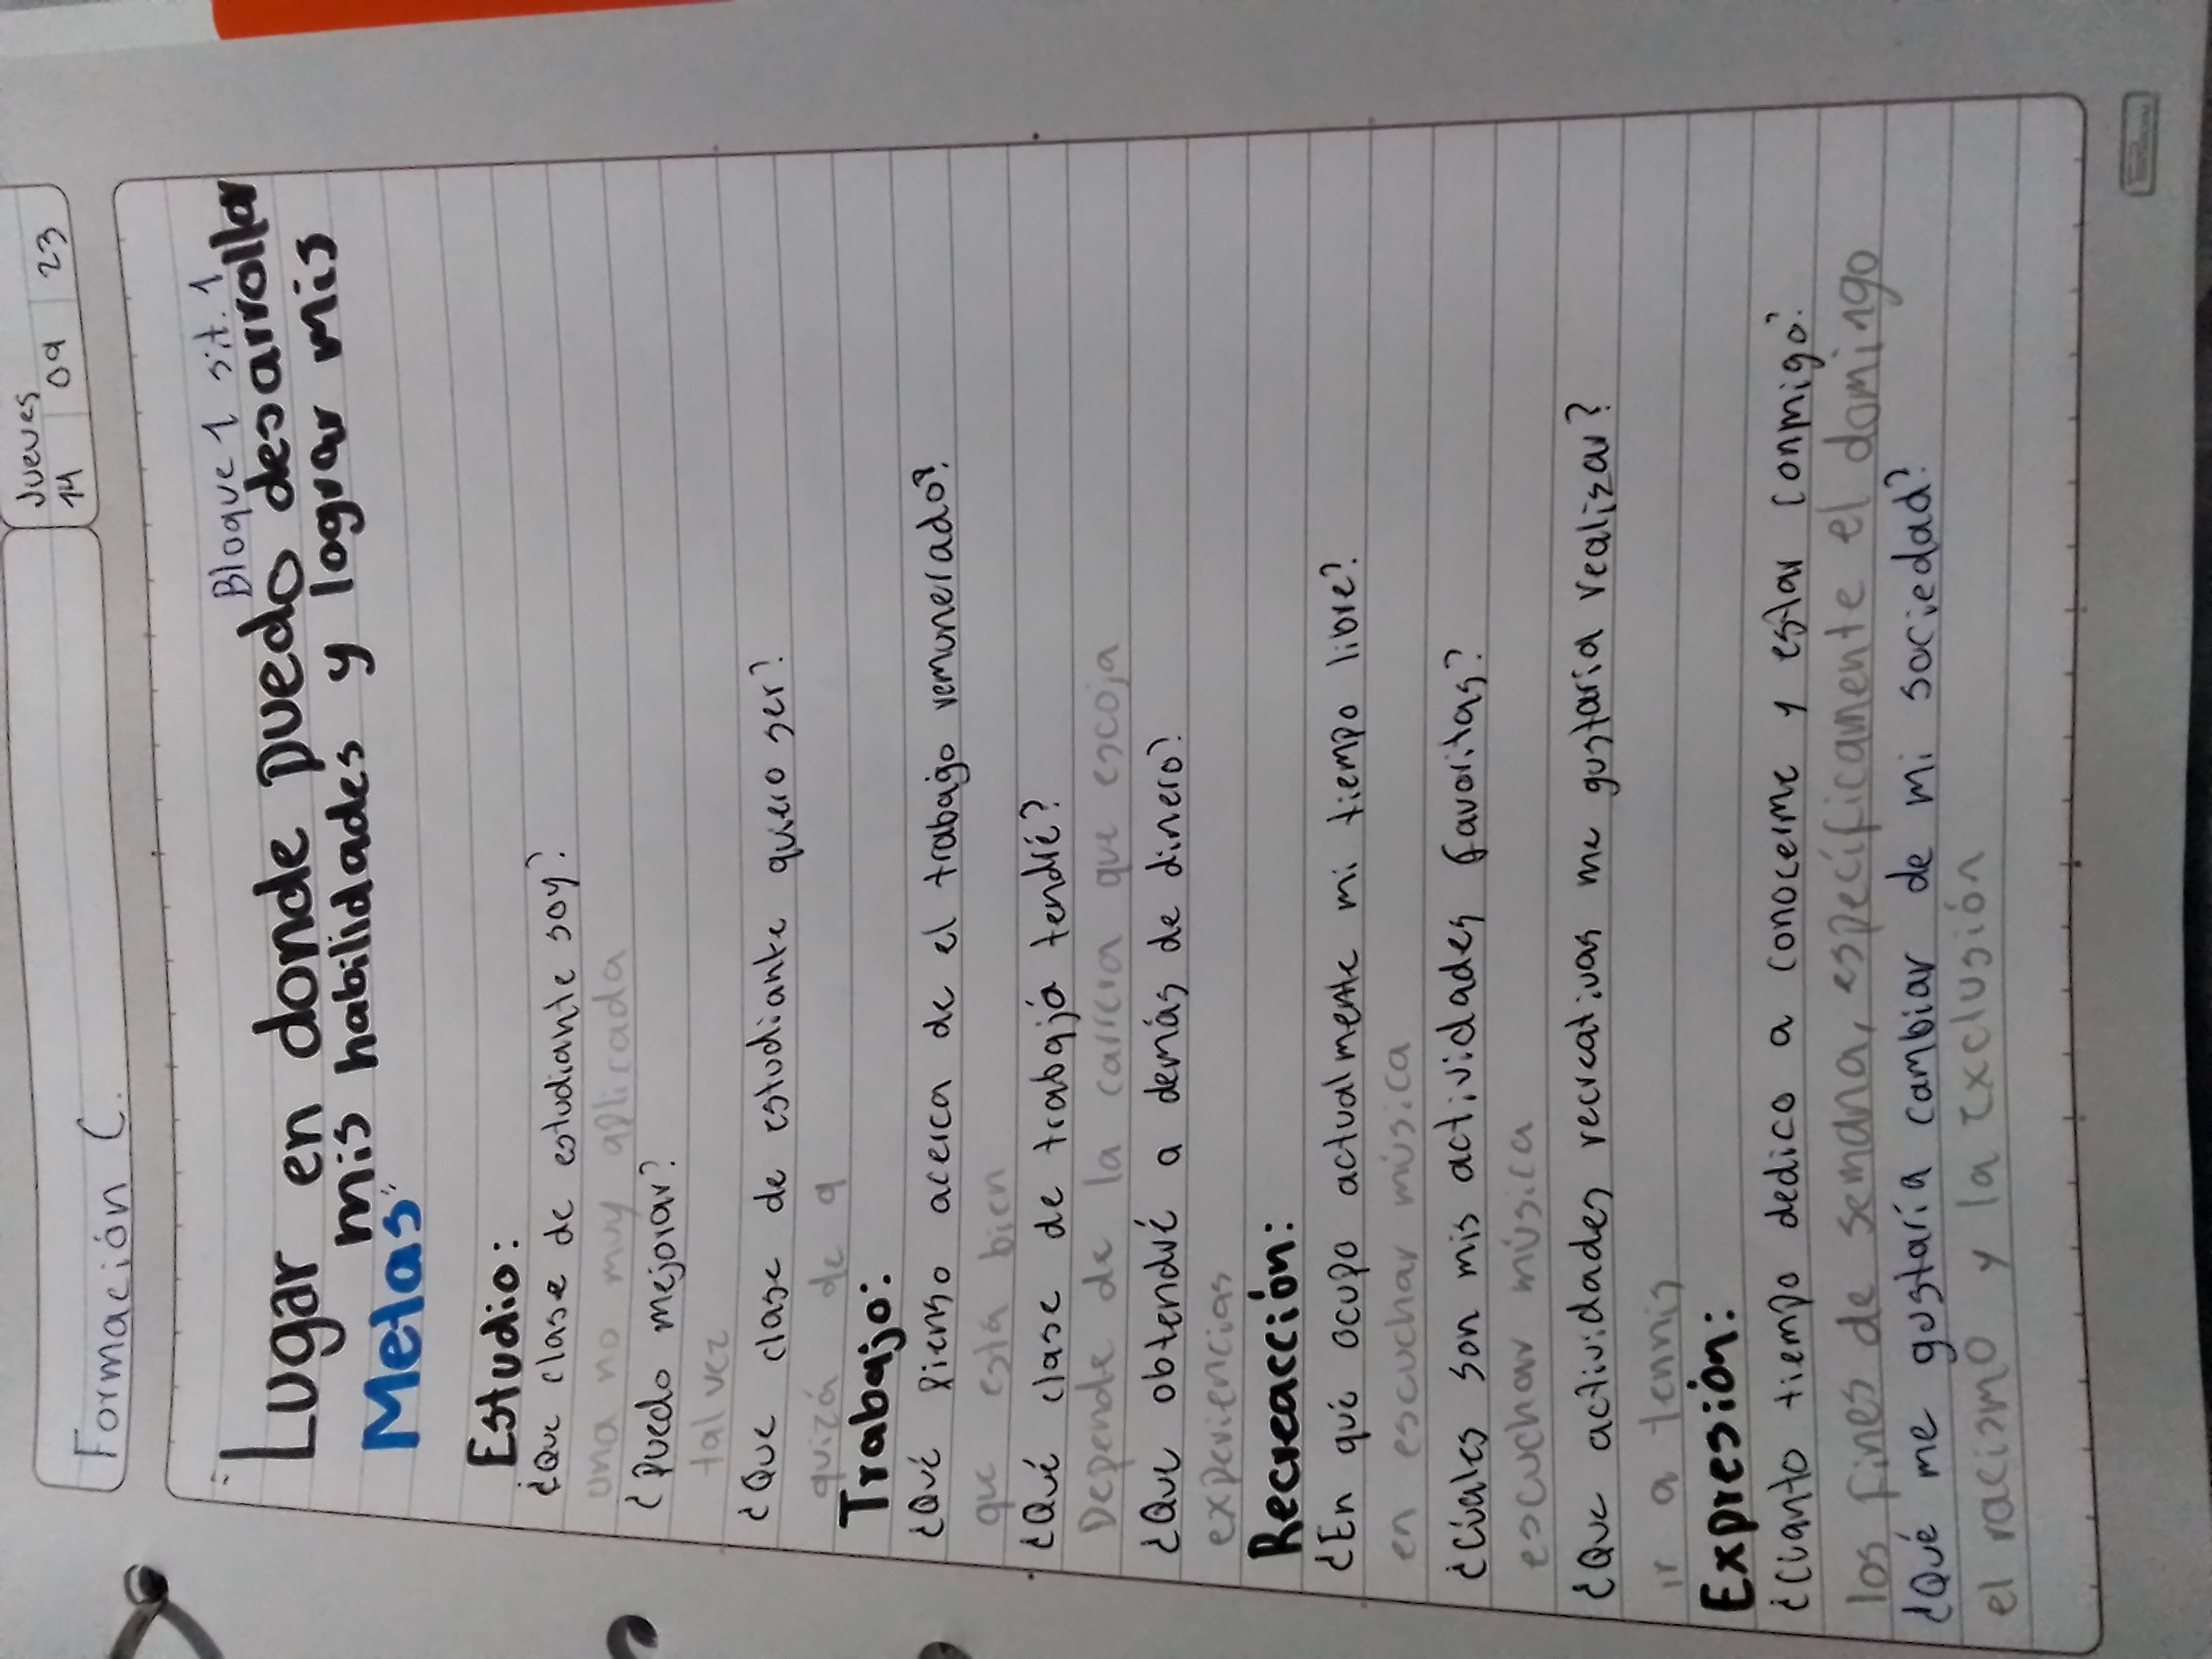 Jueves
14 09 23
Formación C.
Bloque 1 sit. 1
"Lugar en donde puedo desarrollar
mis habilidades y lograr mis
Metas"
Estudio:
¿Que clase de estudiante soy?
una no muy aplicada
¿Puedo mejorar?
tal vez
¿Que clase de estudiante quiero ser?
quizá de 9
Trabajo:
¿Qué pienso acerca de el trabajo remunerado?
que está bien
¿Qué clase de trabajó tendré?
Depende de la carrera que escoja
¿Que obtendré a demás de dinero?
experiencias
Recreacción:
¿En qué ocupo actualmente mi tiempo libre?
en escuchar música
¿Cúales son mis actividades favoritas?
escuchar música
¿Que actividades recreativas me gustaría realizar?
ir a tennis
Expresión:
¿Cuanto tiempo dedico a conocerme y estar conmigo?
los fines de semana, específicamente el domingo
¿Qué me gustaría cambiar de mi sociedad?
el racismo y la exclusión